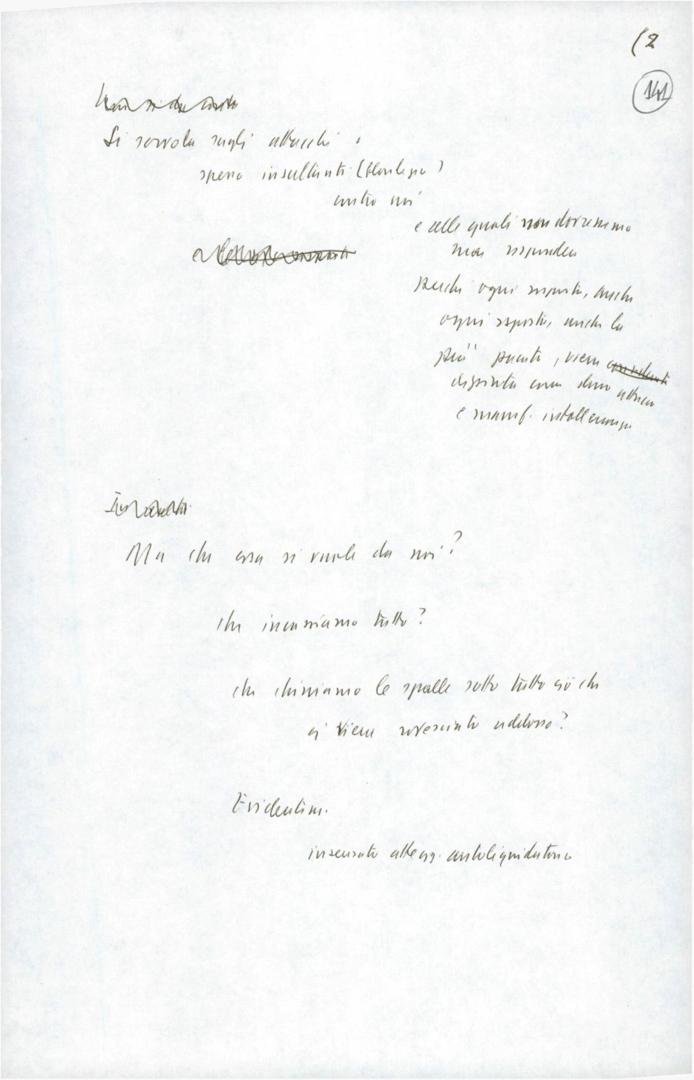 (2
141
Si sorvola sugli attacchi
spesso insultanti
contro noi
e alle quali non dovremmo
mai rispondere
perché ogni risposta, anche
ogni risposta, anche la
più pacata, viene
dipinta come
e manif. intolleranza
Ma che cosa si vuole da noi?
che incassiamo tutto?
che chiniamo le spalle sotto tutto ciò che
ci viene rovesciato addosso?
Evidentem.
insensato atteg. autoliquidatorio